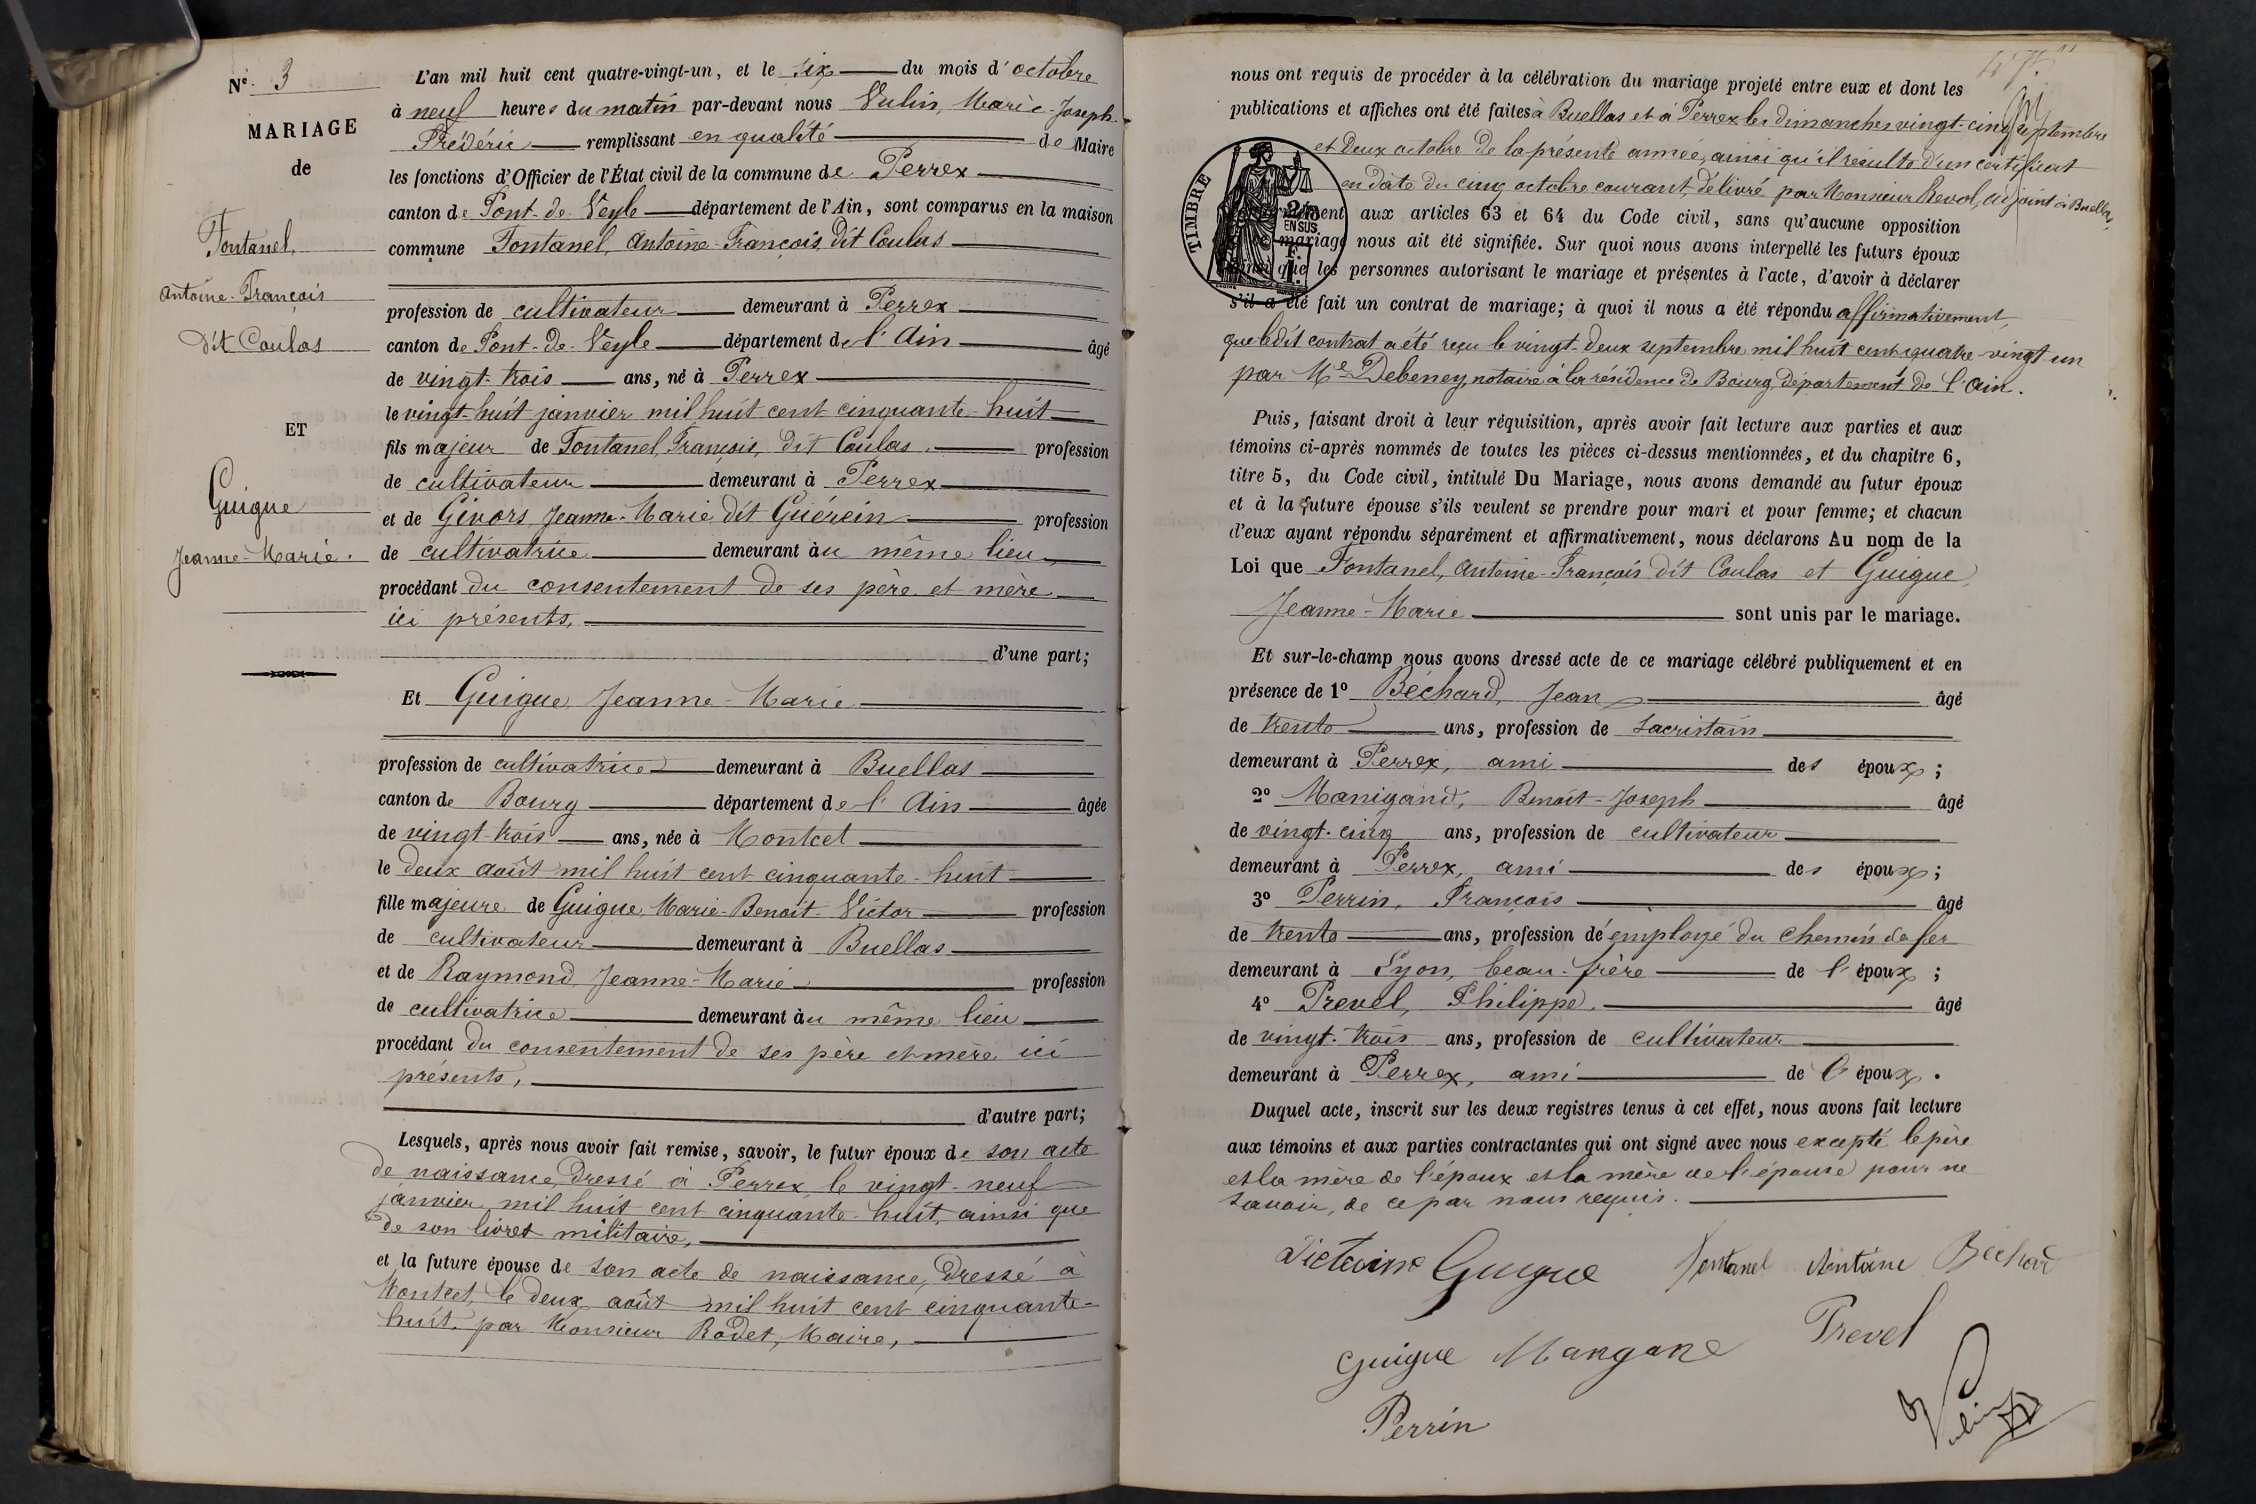 N° 3
MARIAGE
de
Fontanel,
Antoine-François
dit Coulas
ET
Guigue
Jeanne-Marie.
L'an mil huit cent quatre-vingt-un, et le six du mois d'octobre
à neuf heures du matin par-devant nous Vulin, Marie-Joseph-
Frédéric remplissant en qualité de Maire
les fonctions d'Officier de l'État civil de la commune de Perrex
canton de Pont-de-Veyle département de l'Ain, sont comparus en la maison
commune Fontanel, Antoine-François, dit Coulas
profession de cultivateur demeurant à Perrex
canton de Pont-de-Veyle département de l'Ain âgé
de vingt-trois ans, né à Perrex
le vingt-huit janvier mil huit cent cinquante-huit
fils majeur de Fontanel, François, dit Coulas. profession
de cultivateur demeurant à Perrex
et de Givors Jeanne-Marie dit Guérein profession
de cultivatrice demeurant au même lieu,
procédant du consentement de ses père et mère
ici présents,
d'une part;
Et Guigue, Jeanne-Marie
profession de cultivatrice demeurant à Buellas
canton de Bourg département de l'Ain âgée
de vingt-trois ans, née à Montcet
le deux août mil huit cent cinquante-huit
fille majeure de Guigue, Marie-Benoit-Victor profession
de cultivateur demeurant à Buellas
et de Raymond Jeanne-Marie profession
de cultivatrice demeurant au même lieu
procédant du consentement de ses père et mère ici
présents,
d'autre part;
Lesquels, après nous avoir fait remise, savoir, le futur époux de son acte
de naissance, dressé à Perrex, le vingt-neuf
janvier mil huit cent cinquante-huit, ainsi que
de son livret militaire,
et la future épouse de son acte de naissance, dressé à
Montcet, le deux août mil huit cent cinquante-
huit par Monsieur Rodet, Maire,
nous ont requis de procéder à la célébration du mariage projeté entre eux et dont les
publications et affiches ont été faites à Buellas et à Perrex les dimanches vingt-cinq septembre
et deux octobre de la présente année, ainsi qu'il résulte d'un certificat
en date du cinq octobre courant, délivré par Monsieur Revol, adjoint à Buellas,
TIMBRE
2/10
EN SUS
aux articles 63 et 64 du Code civil, sans qu'aucune opposition
mariage nous ait été signifiée. Sur quoi nous avons interpellé les futurs époux
que les personnes autorisant le mariage et présentes à l'acte, d'avoir à déclarer
s'il a été fait un contrat de mariage; à quoi il nous a été répondu affirmativement,
que ledit contrat a été reçu le vingt-deux septembre mil huit cent quatre-vingt-un
par Me Debeney, notaire à la résidence de Bourg département de l'Ain.
Puis, faisant droit à leur réquisition, après avoir fait lecture aux parties et aux
témoins ci-après nommés de toutes les pièces ci-dessus mentionnées, et du chapitre 6,
titre 5, du Code civil, intitulé Du Mariage, nous avons demandé au futur époux
et à la future épouse s'ils veulent se prendre pour mari et pour femme; et chacun
d'eux ayant répondu séparément et affirmativement, nous déclarons Au nom de la
Loi que Fontanel, Antoine-François dit Coulas et Guigue,
Jeanne-Marie sont unis par le mariage.
Et sur-le-champ nous avons dressé acte de ce mariage célébré publiquement et en
présence de 1° Béchard, Jean âgé
de trente ans, profession de sacristain
demeurant à Perrex, ami des époux;
2° Manigand, Benoit-Joseph âgé
de vingt-cinq ans, profession de cultivateur
demeurant à Perrex, ami des époux;
3° Perrin, François âgé
de trente ans, profession d'employé du chemin de fer
demeurant à Lyon, beau-frère de l'époux;
4° Prevel, Philippe. âgé
de vingt-trois ans, profession de cultivateur
demeurant à Perrex, ami de l'époux.
Duquel acte, inscrit sur les deux registres tenus à cet effet, nous avons fait lecture
aux témoins et aux parties contractantes qui ont signé avec nous excepté le père
et la mère de l'époux et la mère de l'épouse pour ne
savoir, de ce par nous requis.
Guigue Fontanel Antoine Béchard
Guigue Prevel
Perrin
Vulin